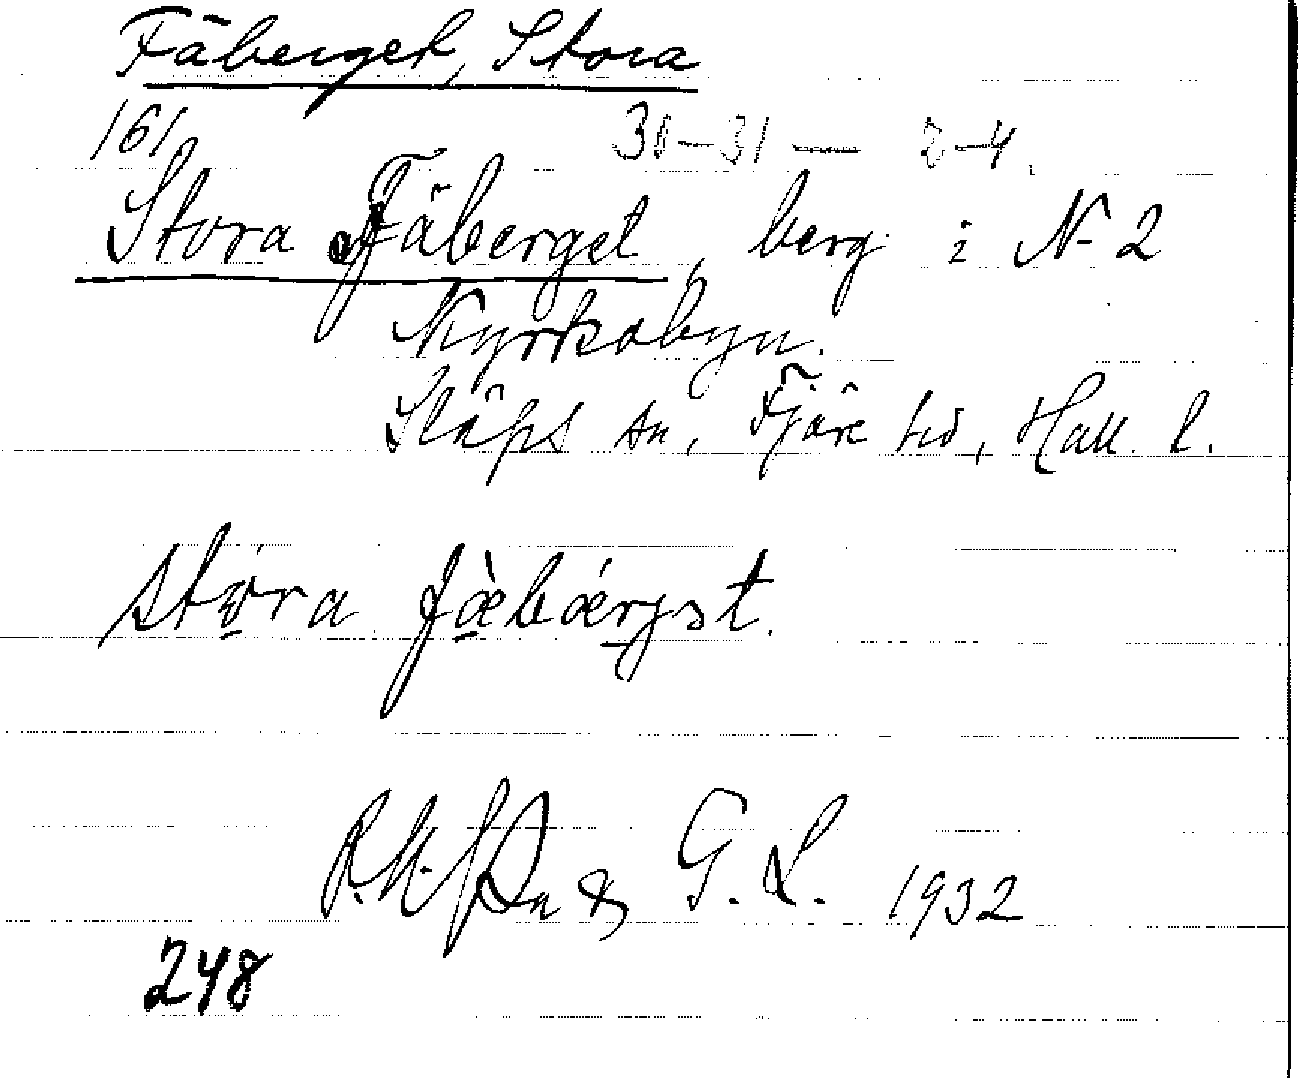 Fäberget, Stora
161 30–31 — 2–4.
Stora Fäberget, berg i N 2
Kyrkobyn.
Släps sn, Fjäre hd, Hall. l.
stora fæ̀bǽrjət.
& G. L. 1932
248